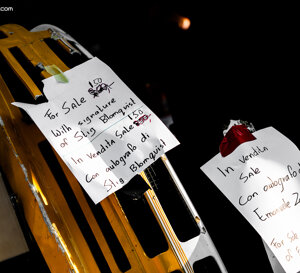 For SALE $50
With signature
of Slig Blomquist
In Vendita SALE $50
Con autografo di
Slig Blomquist
In Vendita
SALE
Con autografo
Emanuele
For SALE